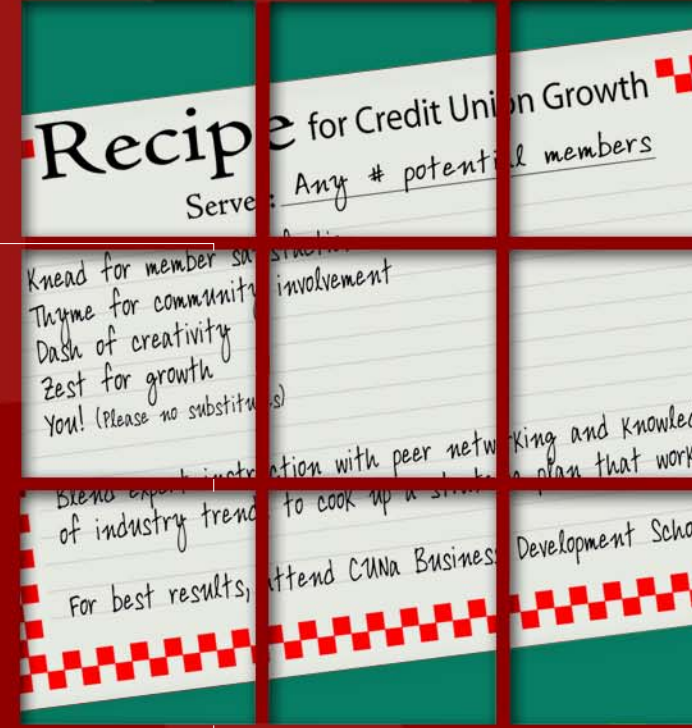 Recipe for Credit Union Growth
Serves: Any # potential members
Knead for member satisfaction
Thyme for community involvement
Dash of creativity
Zest for growth
You! (Please no substitutes)
Blend expert instruction with peer networking and Knowled
of industry trends to cook up a plan that work
For best results, attend CUNA Business Development Scho